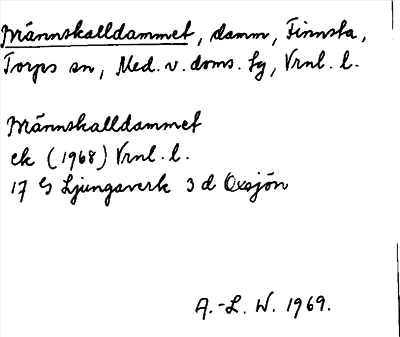 Männskalldammet, damm, Finnsta,
Torps sn, Med. v. doms. lg, Vrnl. l.
Männskalldammet
ek (1968) Vrnl. l.
17 G Ljungaverk 3 d Oxsjön
A.-L. W. 1969.